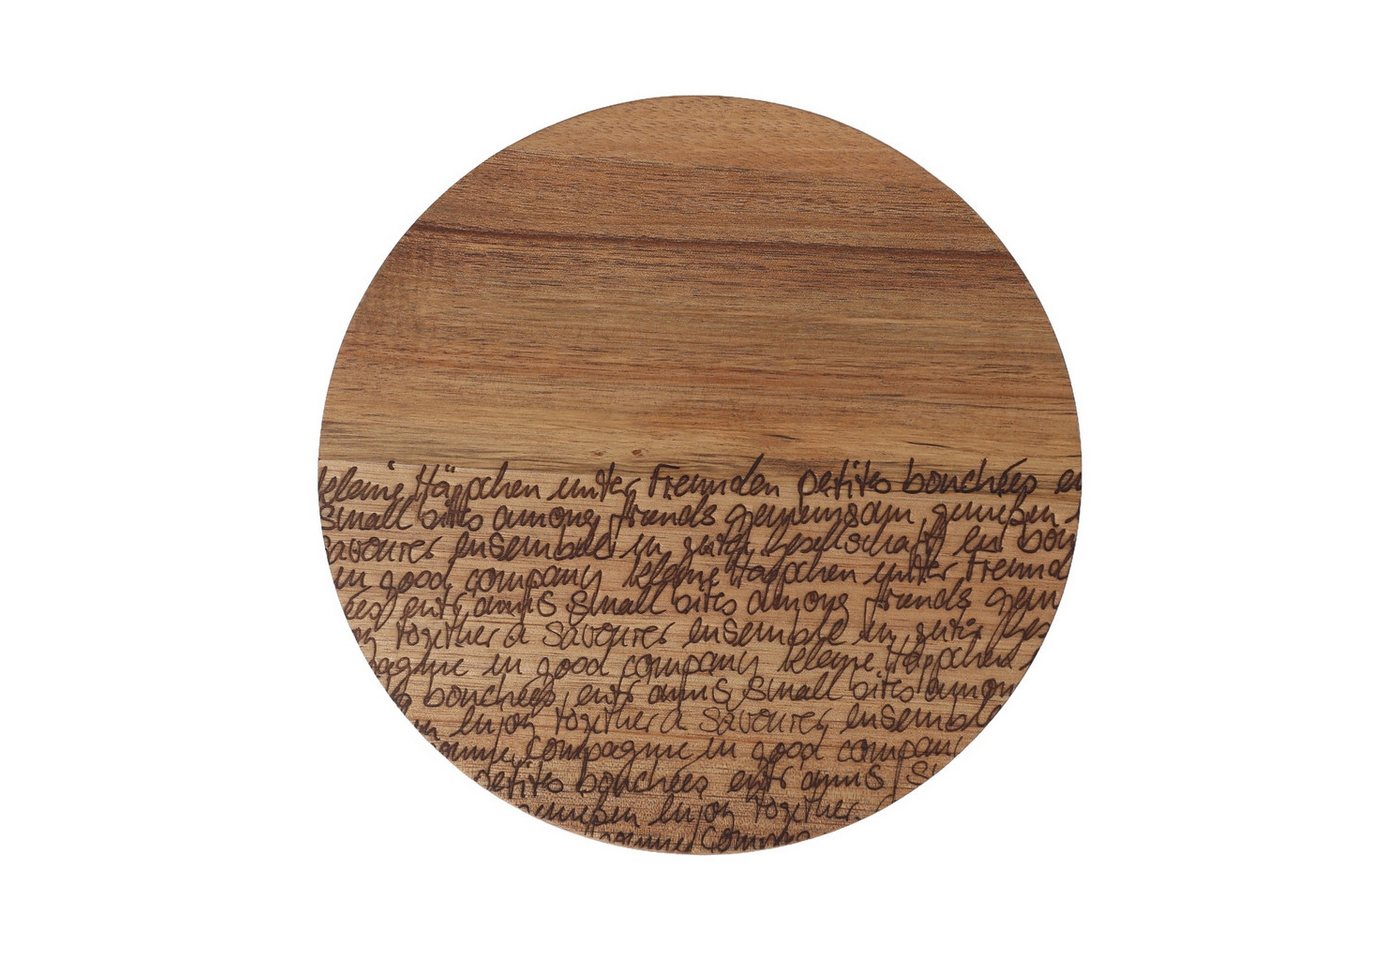 kleine Häppchen unter Freunden petites bouchées en
small bites among friends gemeinsam genießen
savourer ensemble in guter Gesellschaft en bon
in good company kleine Häppchen unter Freund
ées entr amis small bites among friends gem
together à savourer ensemble in guter Ges
pagnie in good company kleine Häppchen
bouchées entr amis small bites among
enjoy together à savourer ensemble
bonne compagnie in good company
petites bouchées entr amis s
genießen enjoy together
bonne comp